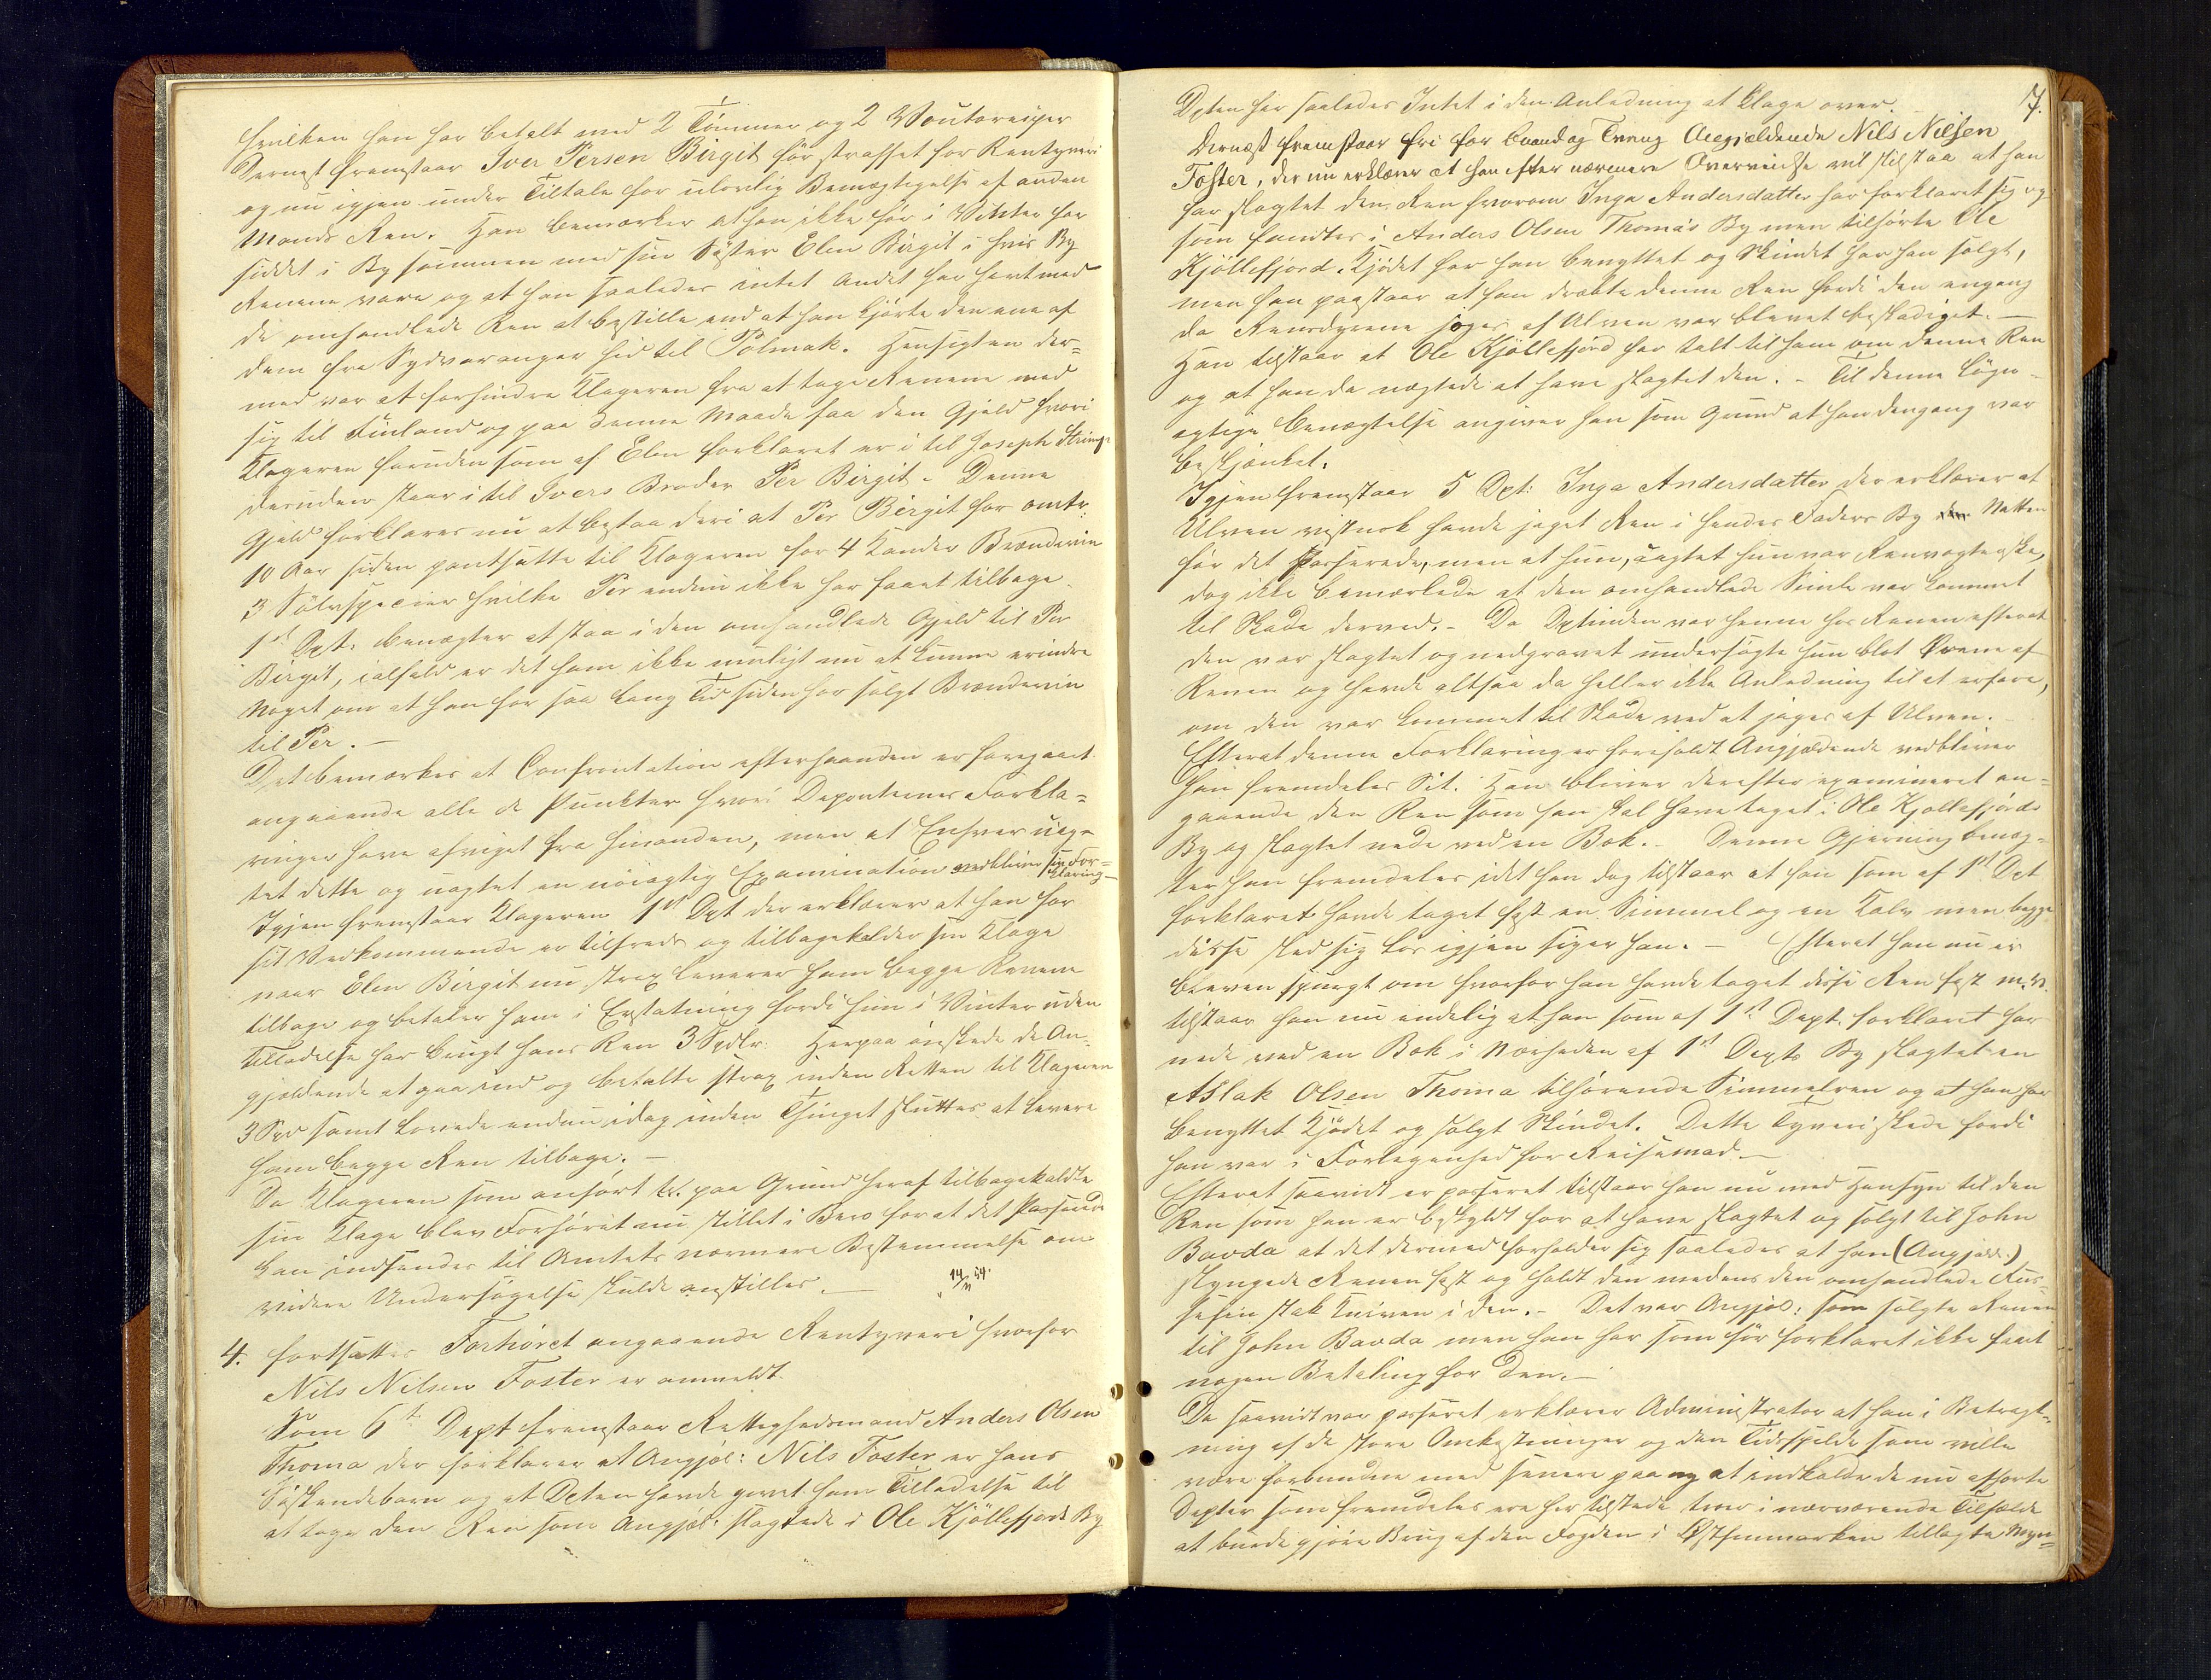 hvilken han har betalt med 2 Tömmer og 2 Voutoraiper
Dernæst fremstaar Iver Persen Birgit før straffet for Rentyveri
og nu igjen under Tiltale for ulovlig Bemægtigelse af anden
Mands Ren. Han bemærker at han ikke før i Vinter har
siddet i By sammen med sin Søster Elen Birgit i hvis By
Renene vare og at han saaledes intet andet har havt med
de omhandlede Ren at bestille end at han kjørte den ene af
dem fra Sydvaranger hid til Polmak. Hensigten der-
med var at forhindre Klageren fra at tage Renene med
sig til Finland og paa denne Maade faa den Gjeld hvori
Klageren foruden som af Elen forklaret er i til Joseph
desuden staar i til Ivers Broder Per Birgit. Denne
Gjeld forklares nu at bestaa deri at Per Birgit for omtr.
10 Aar siden pantsatte til Klageren for 4 Kander Brændeviin
3 Sølvspecier hvilke Per endnu ikke har faaet tilbage.
1st Dept. benægter at staa i den omhandlede Gjeld til Per
Birgit, ialfald er det ham ikke muligt nu at kunne erindre
Noget om at han for saa lang Tid siden har solgt Brændeviin
til Per. —
Det bemærkes at Confrontation efterhaanden er foregaaet
angaaende alle de Punkter hvori Deponternes Forkla-
ringer have afveget fra hinanden, men at Enhver uag-
tet dette og uagtet en nøiagtig Examination vedbliver sin For-
klaring —
Igjen fremstaar Klageren 1st Dpt der erklærer at han for
sit Vedkommende er tilfreds og tilbagekalder sin Klage
naar Elen Birgit nu strax leverer ham begge Renene
tilbage og betaler ham i Erstatning fordi hun i Vinter uden
Tilladelse har brugt hans Ren 3 Spdlr. Herpaa ønskede de An-
gjældende at gaa ind og betalte strax inden Retten til Klageren
3 Spd samt lovede endnu idag inden Thinget sluttes at levere
ham begge Ren tilbage. —
Da Klageren som anført paa Grund heraf tilbagekaldte
sin Klage blev Forhøret nu stillet i Bero for at det Passerede
kan indsendes til Amtets nærmere Bestemmelse om
videre Undersøgelse skulde anstilles. —
4. fortsattes Forhøret angaaende Rentyveri hvorfor
Nils Nilsen Foster er anmeldt.
Som 6te Dept fremstaar Rettighedsmand Anders Olsen
Thoma der forklarer at Angjel: Nils Foster er hans
Søskendebarn og at Dpten havde givet ham Tilladelse til
at tage den Ren som Angjel: slagtede i Ole Kjøllefjords By
7.
Dpten har saaledes Intet i den Anledning at klage over.
Dernæst fremstaar fri for Baand og Tvang Angjældende Nils Nilsen
Foster, der nu erklærer at han efter nærmere Overveielse vil tilstaa at han
har slagtet den Ren hvorom Inga Andersdatter har forklaret sig og
som fandtes i Anders Olsen Thomas By men tilhørte Ole
Kjöllefjord. Kjødet har han benyttet og Skindet har han solgt,
men han paastaar at han dræbte denne Ren fordi den engang
da Rensdyrene joges af Ulven var blevet beskadiget. —
Han tilstaar at Ole Kjöllefjord har talt til ham om denne Ren
og at han da nægtede at have slagtet den. - Til denne løgn-
agtige Benægtelse angiver han som Grund at han dengang var
beskjænket.
Igjen fremstaar 5 Dpt: Inga Andersdatter der erklærer at
Ulven vistnok havde jaget Ren i hendes Faders By Natten
før det Passerede, men at hun, uagtet hun var Renvogterske,
dog ikke bemærkede at den omhandlede Simle var kommet
til Skade derved. - Da Dptinden var henne hos Renen efterat
den var slagtet og nedgravet undersøgte hun blot Ørene af
Renen og havde altsaa da heller ikke Anledning til at erfare,
om den var kommet til Skade ved at jages af Ulven. —
Efterat denne Forklaring er foreholdt Angjældende vedbliver
han fremdeles Sit. Han bliver derefter examineret an-
gaaende den Ren som han skal have taget i Ole Kjøllefjords
By og slagtet nede ved en Bæk. - Denne Gjerning benæg-
ter han fremdeles idet han dog tilstaar at han som af 1st Dpt
forklaret havde taget fast en Simmel og en Kalv men begge
disse sled sig løs igjen siger han. — Efterat han nu er
bleven spurgt om hvorfor han havde taget disse Ren fast m.v.
tilstaar han nu endelig at han som af 1st Dept. forklaret har
nede ved en Bæk i Nærheden af 1st Depts By slagtet en
Aslak Olsen Thoma tilhørende Simmelren og at han har
benyttet Kjødet og solgt Skindet. Dette Tyveri skede fordi
han var i Forlegenhed for Reisemad. —
Efterat saavidt er passeret tilstaar han nu med Hensyn til den
Ren som han er beskyldt for at have slagtet og solgt til John
Bavda at det dermed forholder sig saaledes at han (Angjæld.)
slyngede Renen fast og holdt den medens den omhandlede Rus-
sefin stak Kniven i den. - Det var Angjæl: som solgte Renen
til John Bavda men han har som før forklaret ikke faaet
nogen Betaling for den. —
Da saavidt var passeret erklærer Administrator at han i Betragt-
ning af de store Omkostninger og den Tidsspilde som ville
være forbundne med senere paa ny at indkalde de nu afhørte
Depter som fremdeles ere her tilstede troer i nærværende Tilfælde
at burde gjøre Brug af den Fogden i Østfinmarken tillagte Myn-